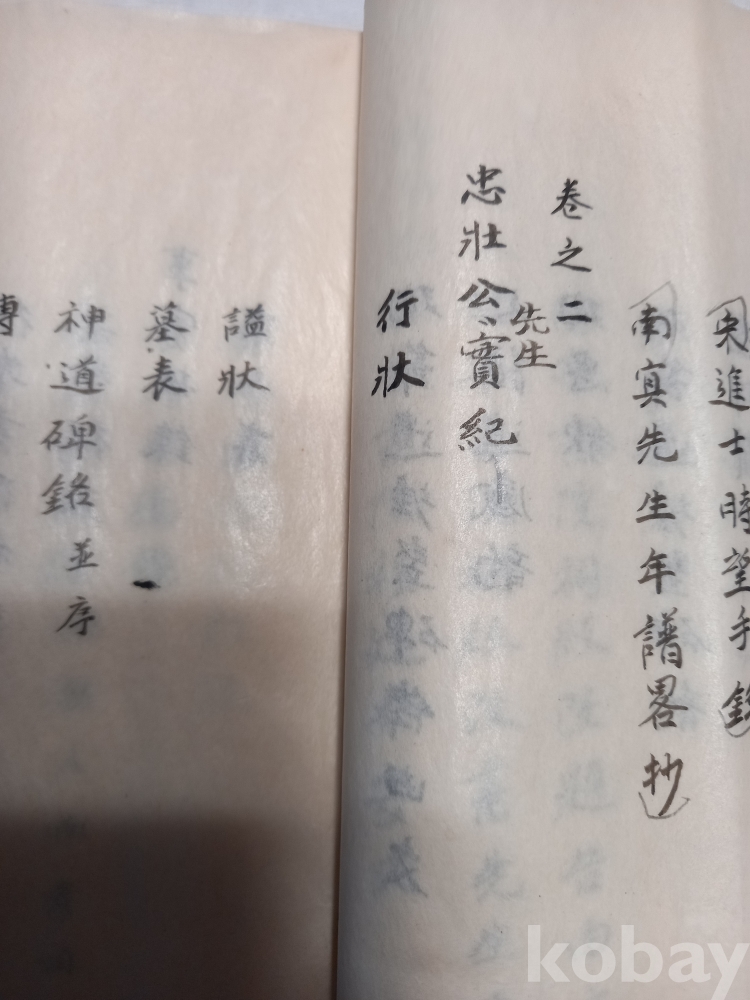 宋進士時望手錄
南㝠先生年譜畧抄
卷之二
忠壯公實紀
先生
行狀
諡狀
墓表
神道碑銘並序
kobay